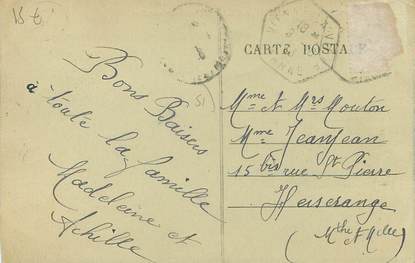 15 €
CARTE POSTALE
51
Bons Baisers
à toute la famille
Madeleine et
Achille
Mme et Mrs Mouton
Mme JeanJean
15 bis rue St Pierre
Herserange
(Mthe et Mlle)